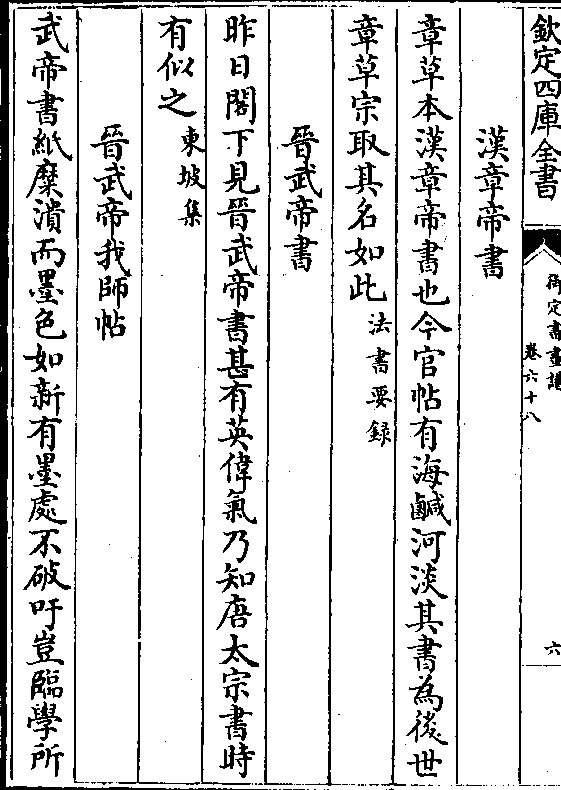 欽定四庫全書
御定書畫譜
卷六十八
六
漢章帝書
章草本漢章帝書也今官帖有海鹹河淡其書為後世
章草宗取其名如此法書要録
晉武帝書
昨日閣下見晉武帝書甚有英偉氣乃知唐太宗書時
有似之東坡集
晉武帝我師帖
武帝書紙糜潰而墨色如新有墨處不破吁豈臨學所